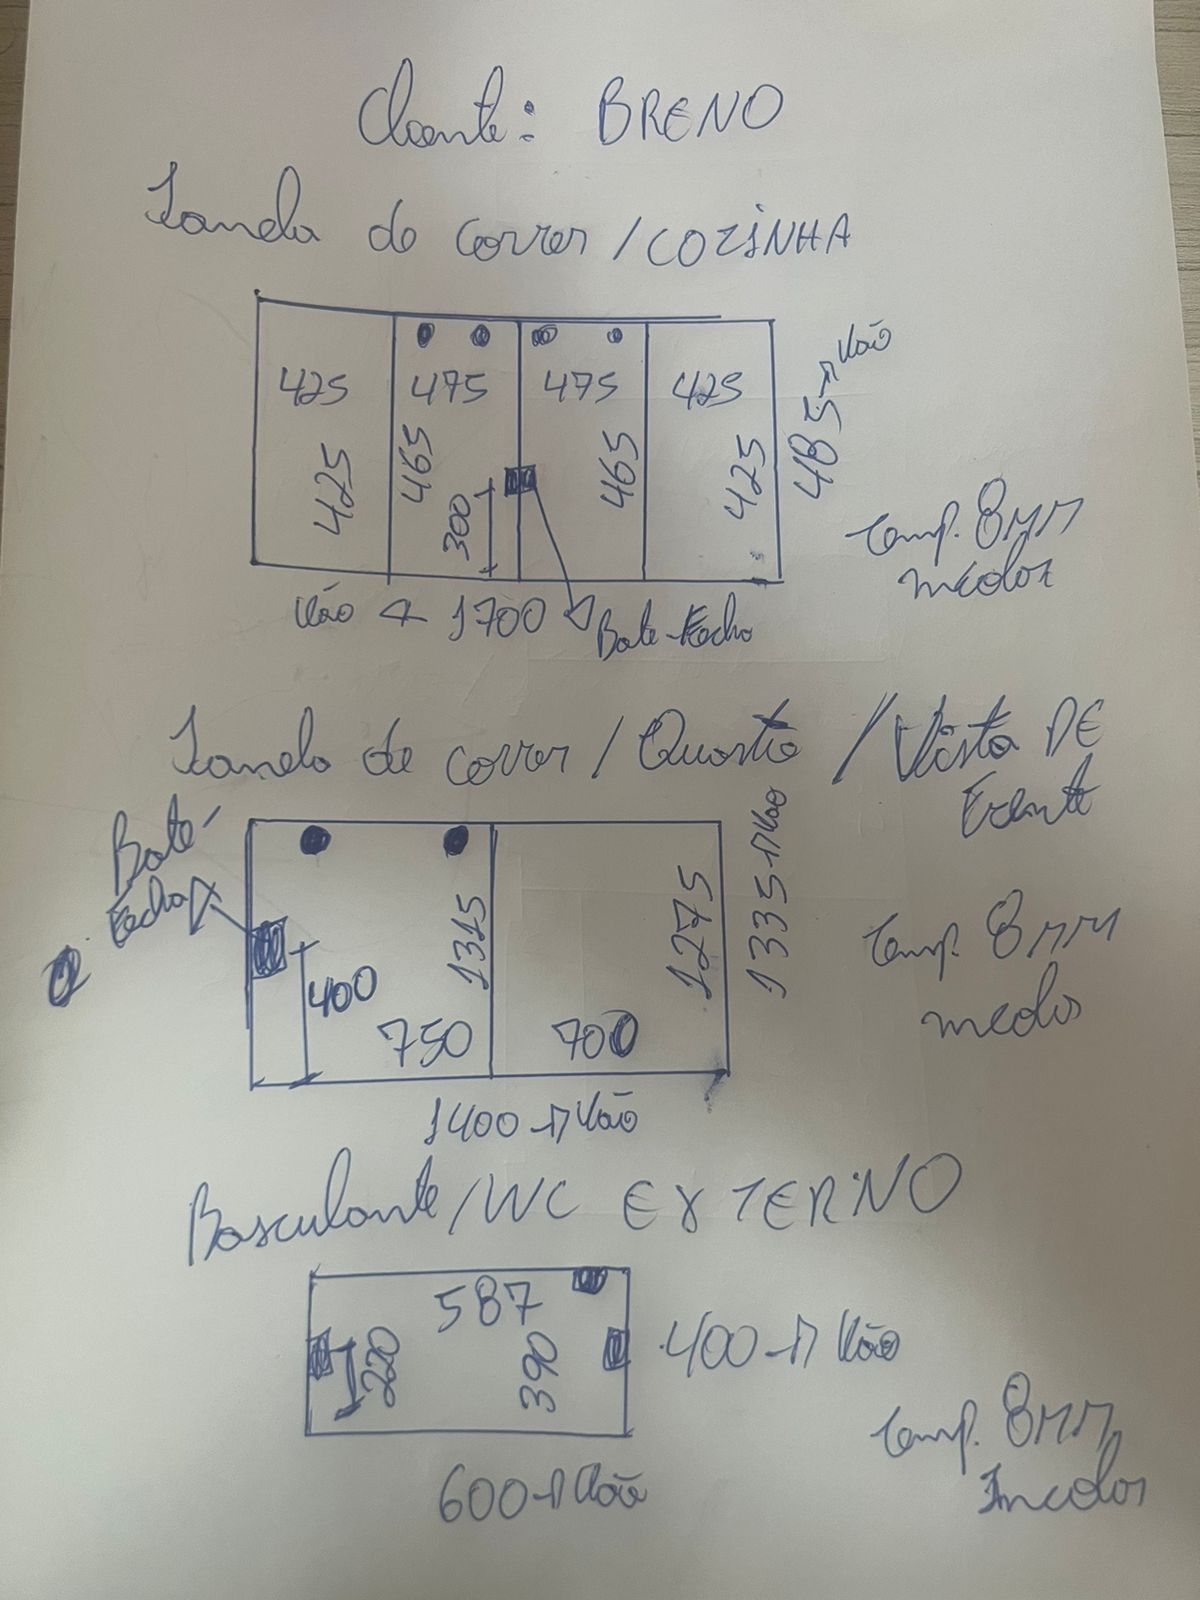 Cliente: BRENO
Janela de correr / COZINHA
425 475 475 425
425 465 465 425 485 → Vão
300
Temp. 8mm
incolor
Vão ← 1700 Bate-Fecho
Janela de correr / Quarto / Vista DE
Frente
Bate-
Fecha
1315 1275 1335 → Vão
400
Temp. 8mm
incolor
750 700
1400 → Vão
Basculante / WC EXTERNO
587
220 390 400 → Vão
Temp. 8mm
Incolor
600 → Vão